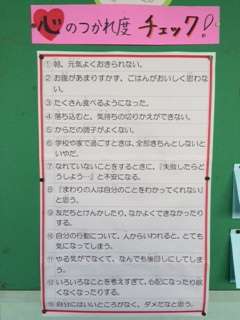 心のつかれ度チェック!
① 朝、元気よくおきられない。
② お腹があまりすかず、ごはんがおいしく思わ
ない。
③ たくさん食べるようになった。
④ 落ち込むと、気持ちの切りかえができない。
⑤ からだの調子がよくない。
⑥ 学校や家で過ごすときは、全部きちんとしないと
いやだ。
⑦ なれていないことをするときに、『失敗したらど
うしよう…』と不安になる。
⑧ 『まわりの人は自分のことをわかってくれない』
と思う。
⑨ 友だちとけんかしたり、なかよくできなかったり
する。
⑩ 自分の行動について、人からいわれると、とても
気になってしまう。
⑪ やる気がでなくて、なんでも後回しにしてしま
う。
⑫ いろいろなことを考えすぎて、心配になったり眠
くなくなったりする。
⑬ 自分にはいいところがなく、ダメだなと思う。